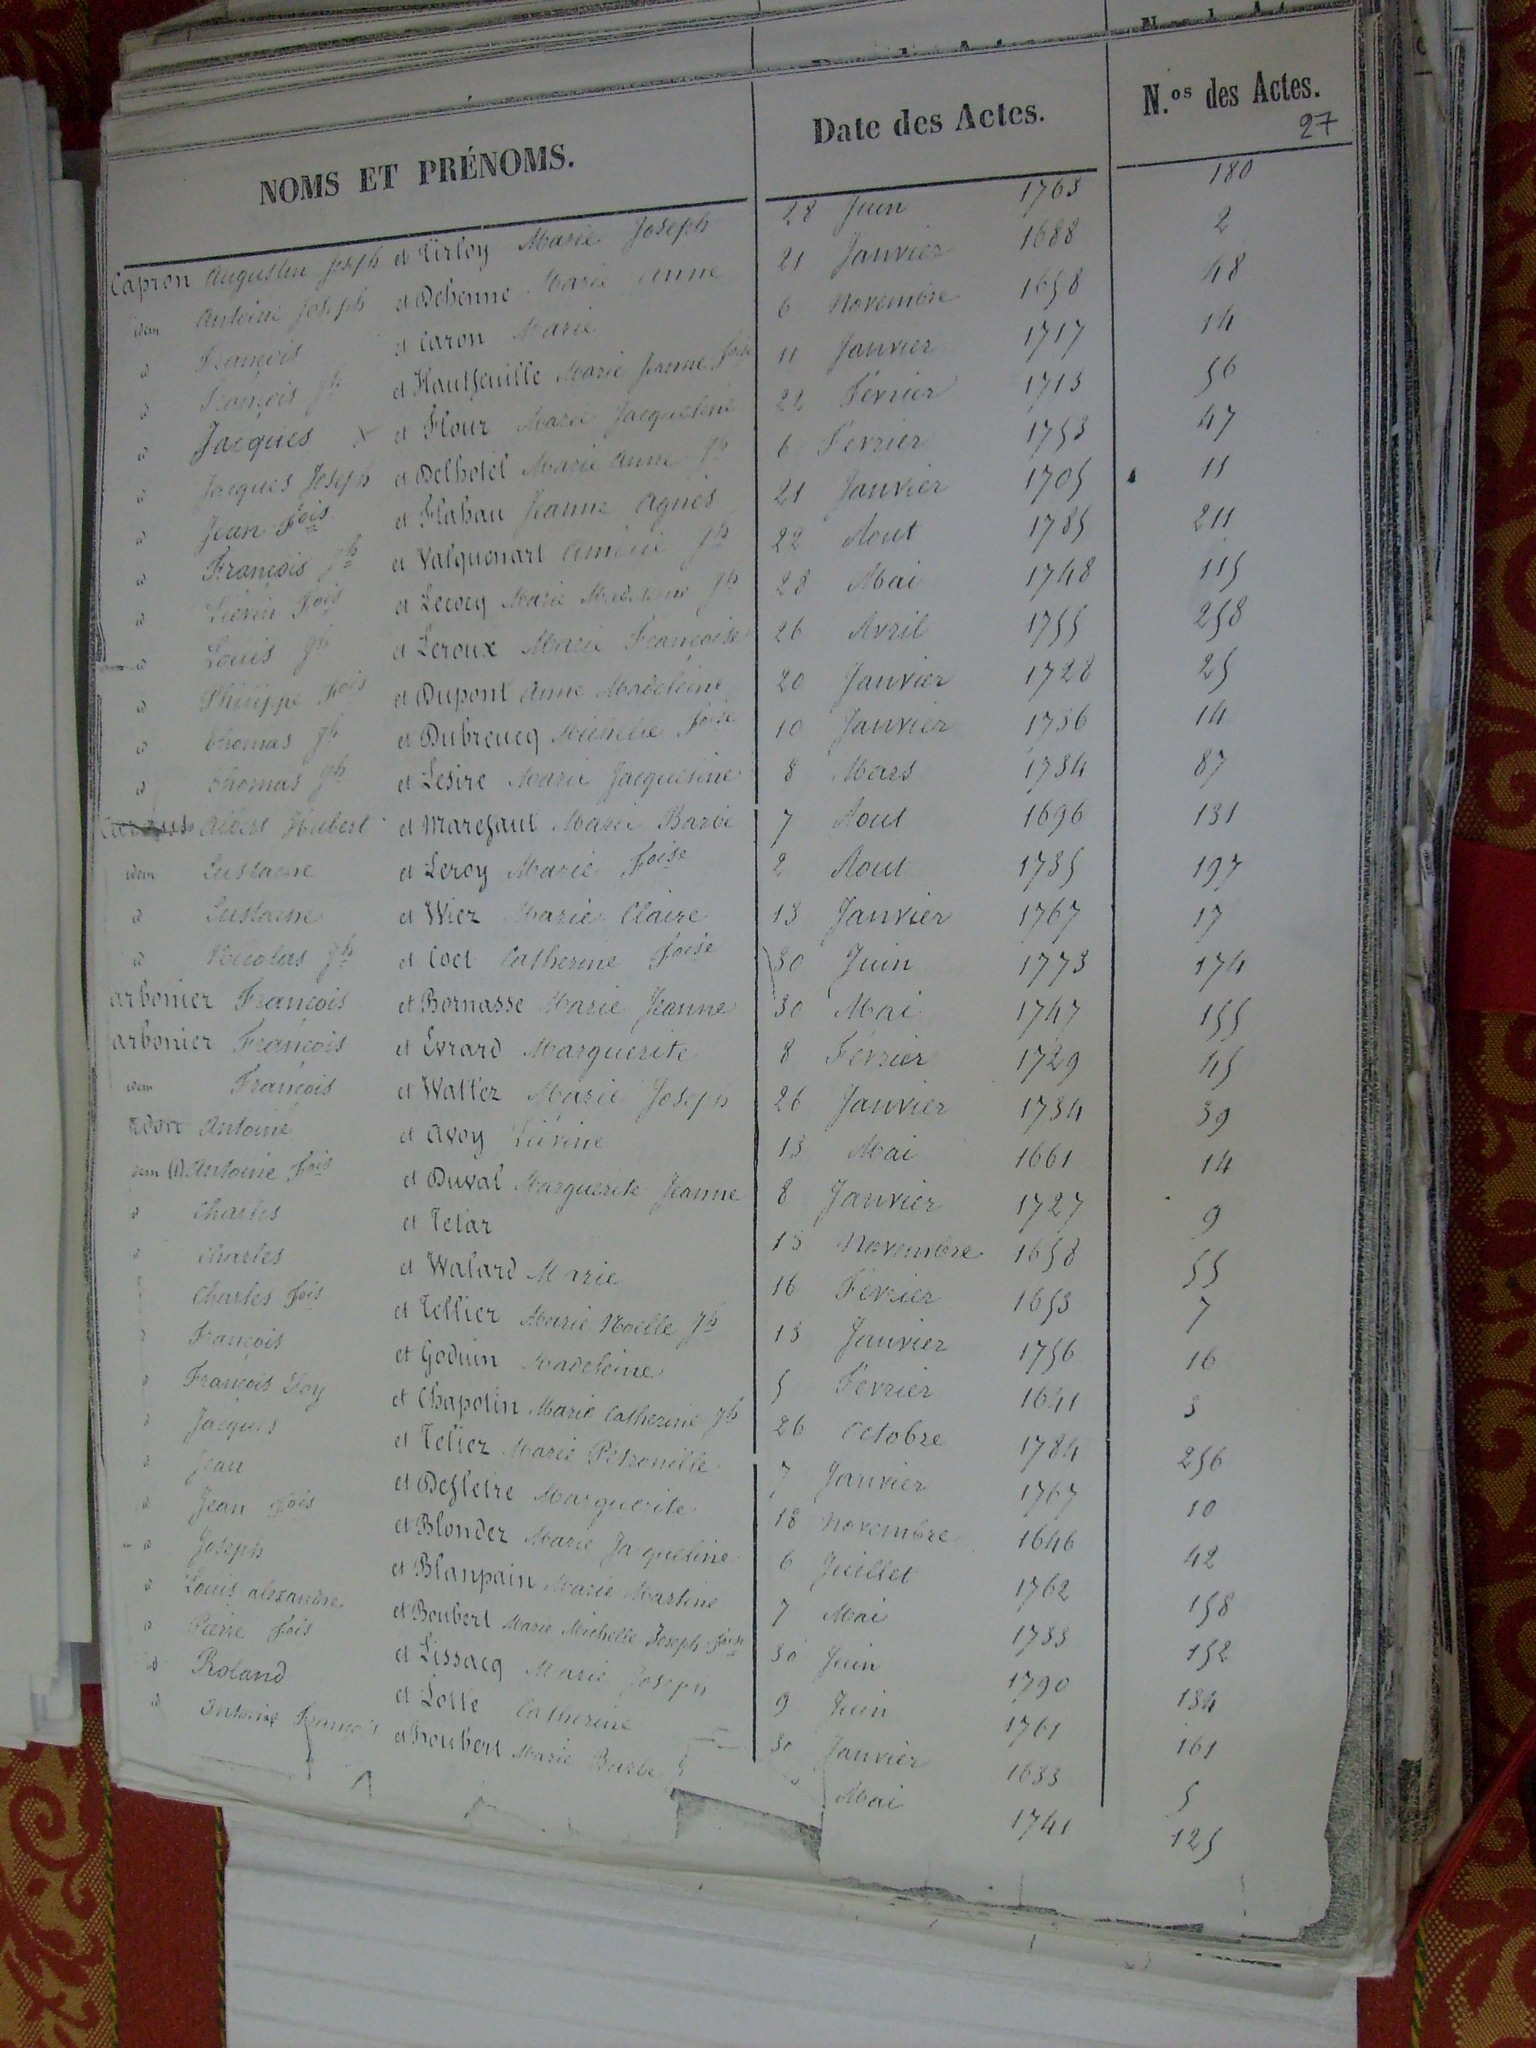 NOMS ET PRÉNOMS. Date des Actes. N.os des Actes.
27
Capron Augustin Joseph et Tirloy Marie Joseph 28 Juin 1763 180
idem Antoine Joseph et Dehenne Marie Anne 21 Janvier 1688 2
d François et Caron Marie 6 Novembre 1658 48
d François Jh et Hautfeuille Marie Jerome foise 11 Janvier 1717 14
d Jacques x et Flour Marie Jacqueline 22 Février 1713 56
d Jacques Joseph et Delhotel Marie Anne Jh 6 Février 1753 47
d Jean fois et Flahau Jeanne Agnès 21 Janvier 1705 11
d François Jh et Valquenart Amérie Jh 22 Aout 1785 211
d Liévin fois et Lecocq Marie Madeleine Jh 28 Mai 1748 115
d Louis Jh et Leroux Marie Françoise 26 Avril 1755 258
d Philippe fois et Dupont Anne Madeleine 20 Janvier 1728 25
d Thomas Jh et Dubreucq Michelle foise 10 Janvier 1736 14
d Thomas Jh et Lesire Marie Jacqueline 8 Mars 1734 87
Albert Hubert et Marchaut Marie Barbe 7 Aout 1696 131
idem Eustache et Leroy Marie foise 2 Aout 1735 197
d Eustache et Wiez Marie Claire 13 Janvier 1767 17
d Nicolas Jh et Coet Catherine foise 30 Juin 1773 174
arbonier François et Bornasse Marie Jeanne 30 Mai 1747 155
arbonier François et Evrard Marguerite 8 Février 1729 45
idem François et Wallez Marie Joseph 26 Janvier 1734 39
Antoine et Avoy Liévine 13 Mai 1661 14
dem (1) Antoine fois et Duval Marguerite Jeanne 8 Janvier 1727 9
d Charles et Telar 15 Novembre 1658 55
d Charles et Walard Marie 16 Février 1653 7
Charles fois et Tellier Marie Noelle Jh 13 Janvier 1756 16
d François et Goduin Madeleine 5 Février 1641 3
d François Eloy et Chapotin Marie Catherine Jh 26 Octobre 1784 256
d Jacques et Telier Marie Pétronille 7 Janvier 1767 10
d Jean et Desletre Marguerite 18 Novembre 1646 42
d Jean fois et Blondez Marie Jacqueline 6 Juillet 1762 158
d Joseph et Blanpain Marie Martine 7 Mai 1733 152
d Louis Alexandre et Boubert Marie Michelle Joseph foise 30 Juin 1790 134
d Pierre fois et Lissacq Marie Joseph 9 Juin 1761 161
d Roland et Lotte Catherine 30 Janvier 1633 5
d Antoine François et Houbert Marie Barbe Mai 1741 125